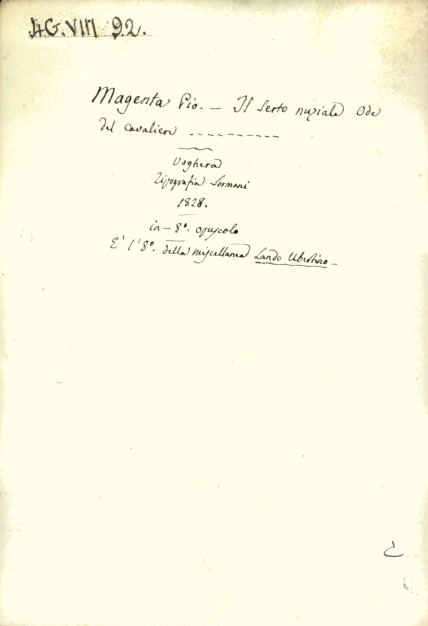 AG.VIII 92.
Magenta Pio. — Il Serto nuziale Ode
del cavaliere ----------
Voghera
Tipografia Sormani
1828.
in-8°. opuscolo
E' l'8°. della miscellanea Lando